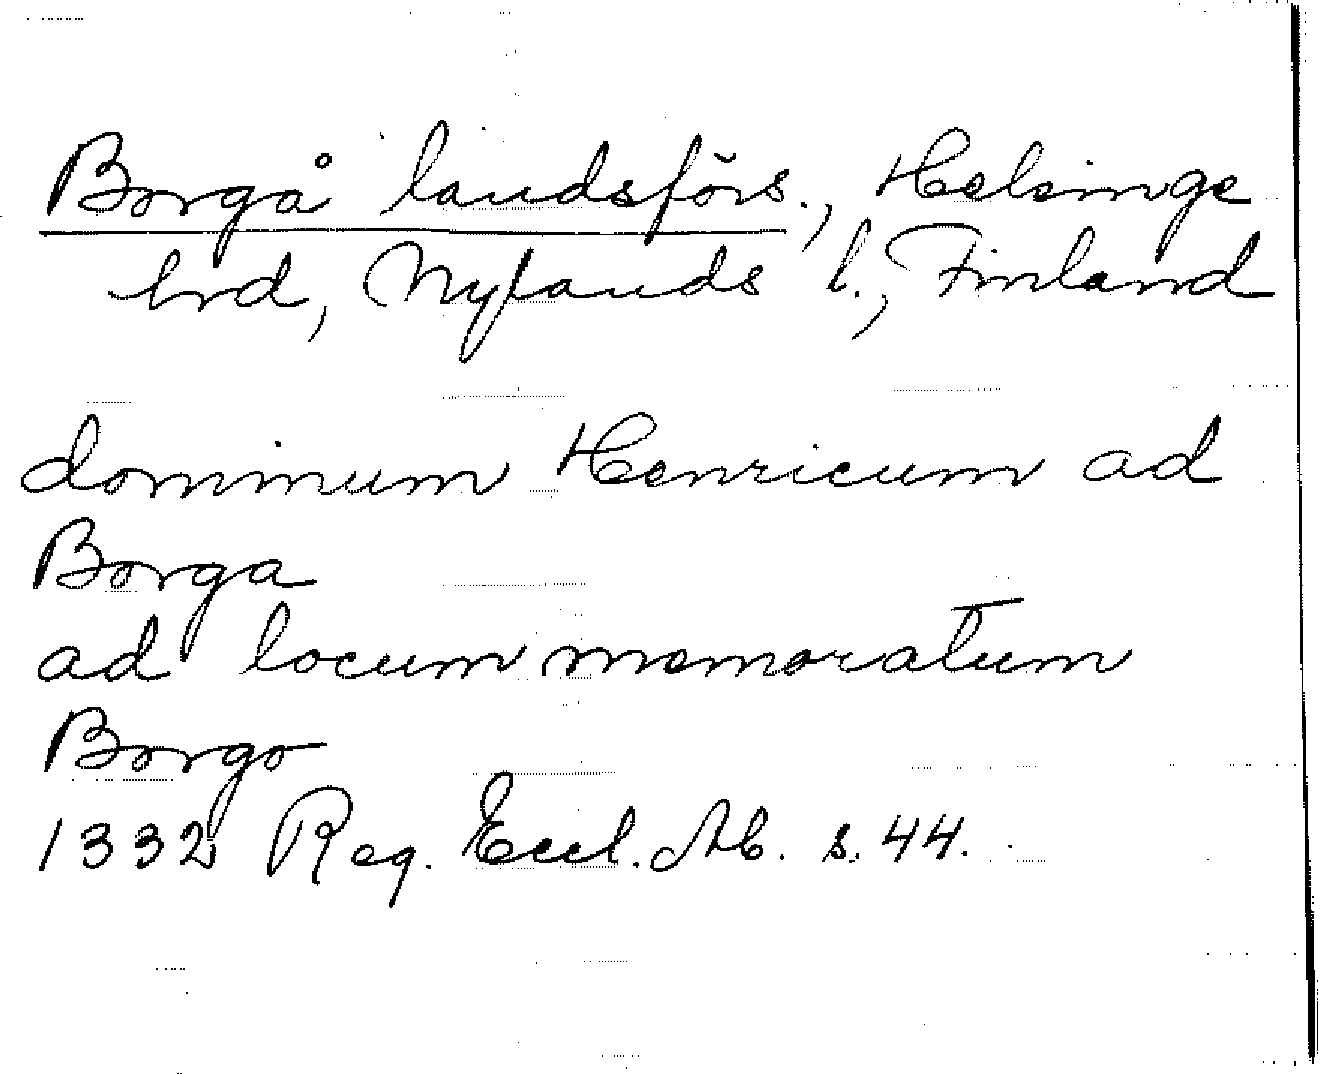 Borgå landsförs., Helsinge
hrd, Nylands l., Finland
dominum Henricum ad
Borga
ad locum memoratum
Borgo
1332 Reg. Eccl. Ab. s. 44.